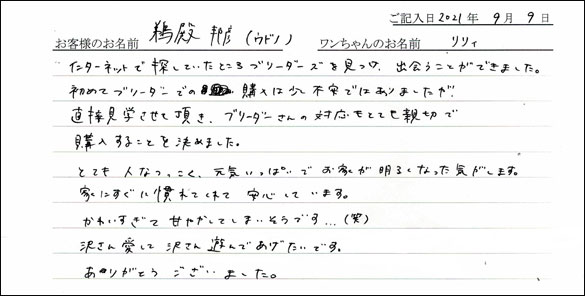 ご記入日 2021年 9月 9日
お客様のお名前 鵜殿 邦彦 (ウドノ) ワンちゃんのお名前 リリィ
インターネットで探していたところブリーダーズを見つけ、出会うことができました。
初めてブリーダーでの購入は少し不安ではありましたが
直接見学させて頂き、ブリーダーさんの対応もとても親切で
購入することを決めました。
とても人なつっこく、元気いっぱいでお家が明るくなった気がします。
家にすぐに慣れてくれて安心しています。
かわいすぎて甘やかしてしまいそうです...(笑)
沢さん愛して沢さん遊んであげたいです。
ありがとうございました。